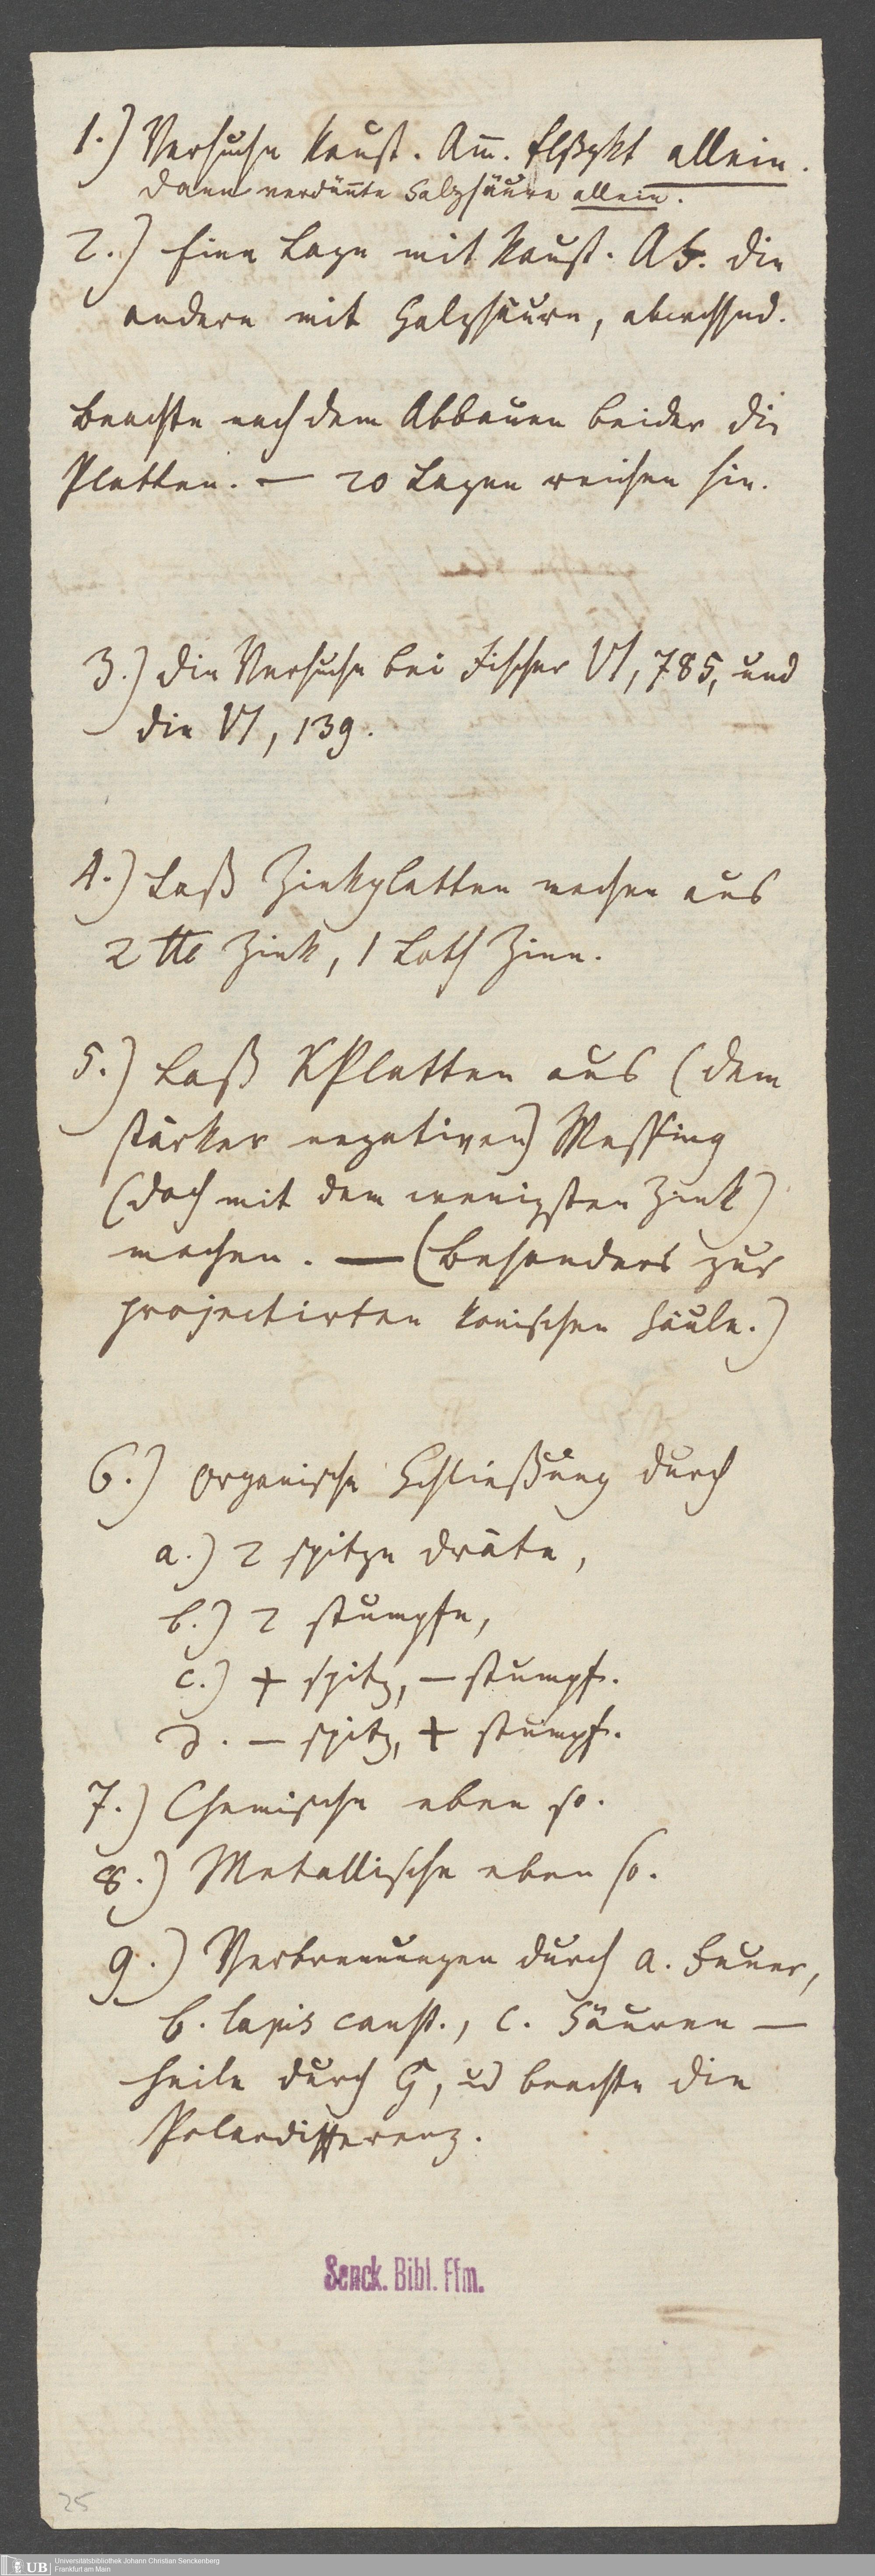 1.) Versuche kaust. Am̅. flßgkt allein.
dann verdün̅te Salzsäure allein.
2.) Eine Lage mit kaust. die
andere mit Salzsäure, abwechselnd.
Beachte nach dem Abbauen beider die
Platten. — 20 Lagen reichen hin.
3.) Die Versuche bei Fischer VI, 785, und
die VI, 139.
4.) Laß Zinkplatten machen aus
2 ℔ Zink, 1 Loth Zinn.
5.) Laß KPlatten aus (dem
stärker negativen) Messing
(doch mit dem wenigsten Zink)
machen. — (Besonders zur
projectirten konischen Säule.)
6.) Organische Schließung durch
a.) 2 spitze Dräte,
b.) 2 stumpfe,
c.) + spitz, — stumpf.
d. — spitz, + stumpf.
7.) Chemische eben so.
8.) Metallische eben so.
9.) Verbrennungen durch a. Feuer,
b. lapis caust., c. Säuren —
heile durch G, ud beachte die
Polardifferenz.
Senck. Bibl. Ffm.
25
UB Universitätsbibliothek Johann Christian Senckenberg
Frankfurt am Main